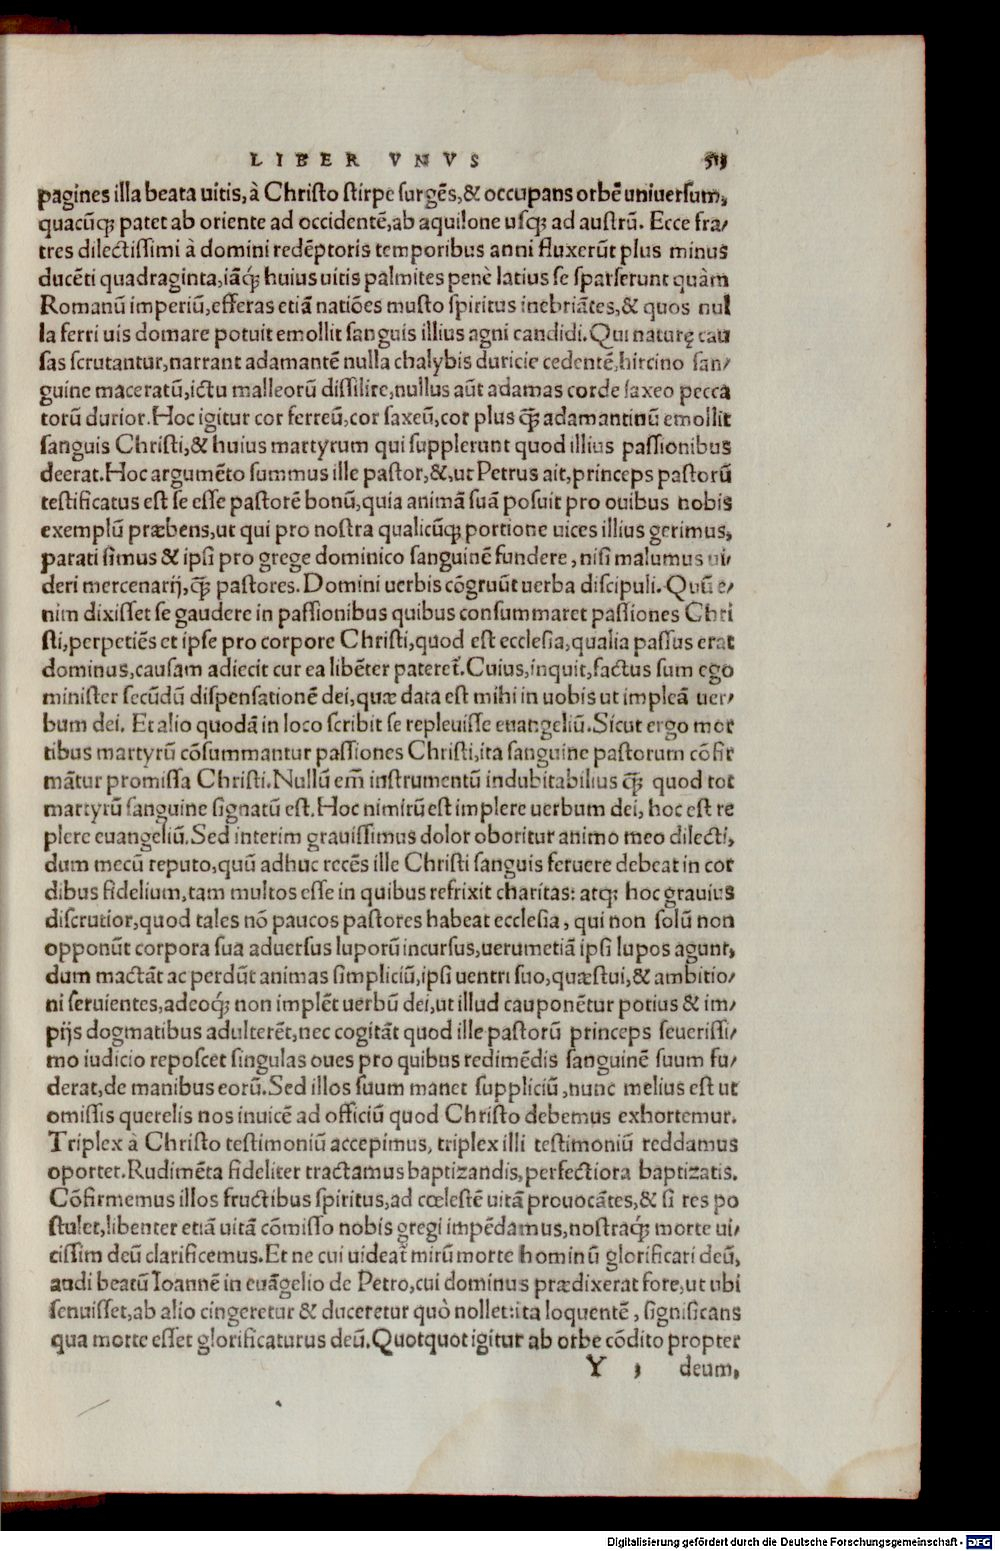 LIBER VNVS 513
pagines illa beata uitis, à Christo stirpe surgẽs, & occupans orbẽ uniuersum,
quacũqꝫ patet ab oriente ad occidentẽ, ab aquilone usqꝫ ad austrũ. Ecce fra/
tres dilectissimi à domini redẽptoris temporibus anni fluxerũt plus minus
ducẽti quadraginta, iãqꝫ́ huius uitis palmites penè latius se sparserunt quàm
Romanũ imperiũ, efferas etiã natiões musto spiritus inebriãtes, & quos nul
la ferri uis domare potuit emollit sanguis illius agni candidi. Qui naturę cau
sas scrutantur, narrant adamantẽ nulla chalybis duricie cedentẽ, hircino san/
guine maceratũ, ictu malleorũ dissilire, nullus aũt adamas corde saxeo pecca
torũ durior. Hoc igitur cor ferreũ, cor saxeũ, cor plus ꝗ̃ adamantinũ emollit
sanguis Christi, & huius martyrum qui supplerunt quod illius passionibus
deerat. Hoc argumẽto summus ille pastor, &, ut Petrus ait, princeps pastorũ
testificatus est se esse pastorẽ bonũ, quia animã suã posuit pro ouibus nobis
exemplũ præbens, ut qui pro nostra qualicũqꝫ portione uices illius gerimus,
parati simus & ipsi pro grege dominico sanguinẽ fundere, nisi malumus ui/
deri mercenarij, ꝗ̃ pastores. Domini uerbis cõgruũt uerba discipuli. Quũ e/
nim dixisset se gaudere in passionibus quibus consummaret passiones Chri
sti, perpetiẽs et ipse pro corpore Christi, quod est ecclesia, qualia passus erat
dominus, causam adiecit cur ea libẽter pateret᷑. Cuius, inquit, factus sum ego
minister secũdũ dispensationẽ dei, quæ data est mihi in uobis ut impleã uer/
bum dei. Et alio quodã in loco scribit se repleuisse euangeliũ. Sicut ergo mor
tibus martyrũ cõsummantur passiones Christi, ita sanguine pastorum cõfir
mãtur promissa Christi. Nullũ em̃ instrumentũ indubitabilius ꝗ̃ quod tot
martyrũ sanguine signatũ est. Hoc nimirũ est implere uerbum dei, hoc est re
plere euangeliũ. Sed interim grauissimus dolor oboritur animo meo dilecti,
dum mecũ reputo, quũ adhuc recẽs ille Christi sanguis feruere debeat in cor
dibus fidelium, tam multos esse in quibus refrixit charitas: atqꝫ hoc grauius
discrutior, quod tales nõ paucos pastores habeat ecclesia, qui non solũ non
opponũt corpora sua aduersus luporũ incursus, uerumetiã ipsi lupos agunt,
dum mactãt ac perdũt animas simpliciũ, ipsi uentri suo, quæstui, & ambitio/
ni seruientes, adeoqꝫ́ non implẽt uerbũ dei, ut illud cauponẽtur potius & im/
pijs dogmatibus adulterẽt, nec cogitãt quod ille pastorũ princeps seuerissi/
mo iudicio reposcet singulas oues pro quibus redimẽdis sanguinẽ suum fu/
derat, de manibus eorũ. Sed illos suum manet suppliciũ, nunc melius est ut
omissis querelis nos inuicẽ ad officiũ quod Christo debemus exhortemur.
Triplex à Christo testimoniũ accepimus, triplex illi testimoniũ reddamus
oportet. Rudimẽta fideliter tractamus baptizandis, perfectiora baptizatis.
Cõfirmemus illos fructibus spiritus, ad cœlestẽ uitã prouocãtes, & si res po
stulet, libenter etiã uitã cõmisso nobis gregi impẽdamus, nostraqꝫ́ morte ui/
cissim deũ clarificemus. Et ne cui uideat᷑ mirũ morte hominũ glorificari deũ,
audi beatũ Ioannẽ in euãgelio de Petro, cui dominus prædixerat fore, ut ubi
senuisset, ab alio cingeretur & duceretur quò nollet: ita loquentẽ, significans
qua morte esset glorificaturus deũ. Quotquot igitur ab orbe cõdito propter
Y 3 deum,
Digitalisierung gefördert durch die Deutsche Forschungsgemeinschaft - DFG